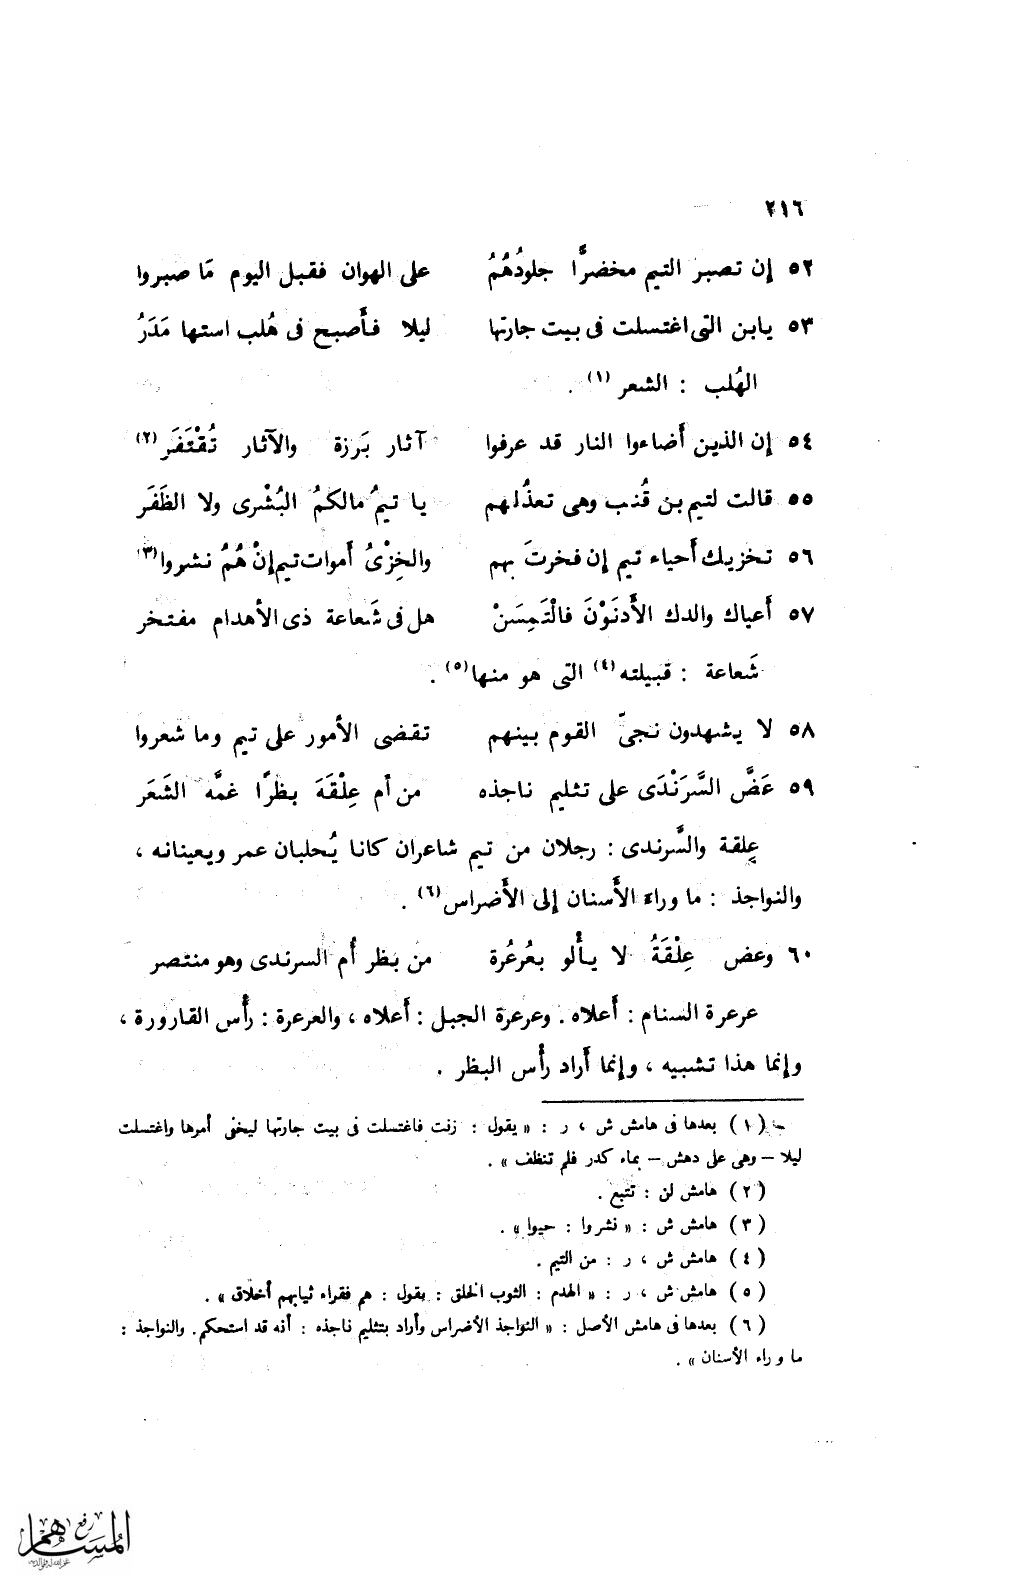 ٢١٦
٥٢ إن تصبر التيم مخضرًّا جلودُهُمُ على الهوان فقبل اليوم مَا صبروا
٥٣ يابن التى اغتسلت فى بيت جارتها ليلا فأَصبح فى هُلب استها مَدَرُ
الهُلب : الشعر (١) .
٥٤ إن الذين أَضاءوا النار قد عرفوا آثار بَرزة والآثار تُقْتَفَر (٢)
٥٥ قالت لتيم بن قُنب وهى تعذُلهم يا تيمُ مالكمُ البُشْرى ولا الظَفَر
٥٦ تخزيك أَحياء تيم إن فخرتَ بهم والخِزْىُ أَموات تيم إنْ هُمُ نشروا (٣)
٥٧ أَعياك والدك الأَدنَوْنَ فالْتَمِسَنْ هل فى شَعاعة ذى الأهدام مفتخر
شَعاعة : قبيلته (٤) التى هو منها (٥) .
٥٨ لا يشهدون نجىّ القوم بينهم تقضى الأمور على تيم وما شعروا
٥٩ عَضَّ السَّرَنْدَى على تثليم ناجذه من أم عِلْقَةَ بظرًا غمَّه الشَعَر
عِلقة والسَّرندى : رجلان من تيم شاعران كانا يُحلبان عمر ويعينانه ،
والنواجذ : ما وراء الأَسنان إلى الأَضراس (٦) .
٦٠ وعض عِلْقَةُ لا يأْلو بعُرعُرة من بظر أُم السرندى وهو منتصر
عرعرة السنام : أَعلاه . وعرعرة الجبل : أَعلاه ، والعرعرة : رأْس القارورة ،
وإنما هذا تشبيه ، وإنما أَراد رأْس البظر .
(١) بعدها فى هامش ش ، ر : « يقول : زنت فاغتسلت فى بيت جارتها ليخفى أمرها واغتسلت
ليلا – وهى على دهش – بماء كدر فلم تنظف » .
(٢) هامش لن : تتبع .
(٣) هامش ش : « نشروا : حيوا » .
(٤) هامش ش ، ر : من التيم .
(٥) هامش ش ، ر : « الهدم : الثوب الخلق : يقول : هم فقراء ثيابهم أخلاق » .
(٦) بعدها فى هامش الأصل : « النواجذ الأضراس وأراد بتثليم ناجذه : أنه قد استحكم. والنواجذ :
ما وراء الأسنان » .
رفع
المساهم